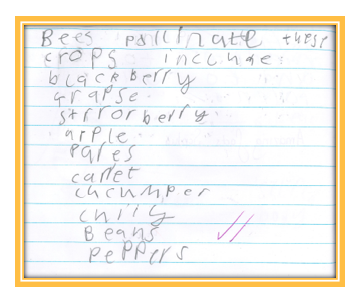 Bees pollinate thesr
crops include:
blackberry
grapse.
strrorberry.
arple
Pares
carret
chcumper
chilly
Beans
Peppers